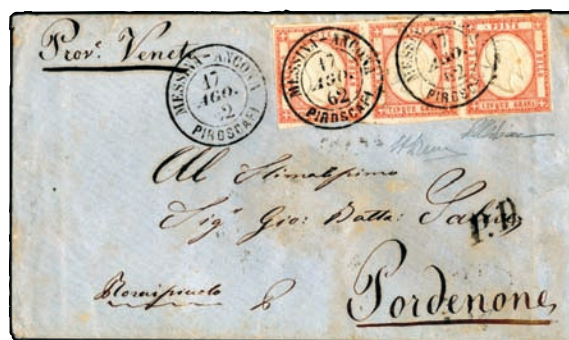 Prov.e Venete
MESSINA-ANCONA
17
AGO.
62
PIROSCAFI
MESSINA-ANCONA
17
AGO.
62
PIROSCAFI
MESSINA-ANCONA
17
AGO.
62
PIROSCAFI
POSTE
CINQUE GRANA
CINQUE GRANA
Al Stimatissimo
Sigr Gio: Batta:
P.D
Pordenone